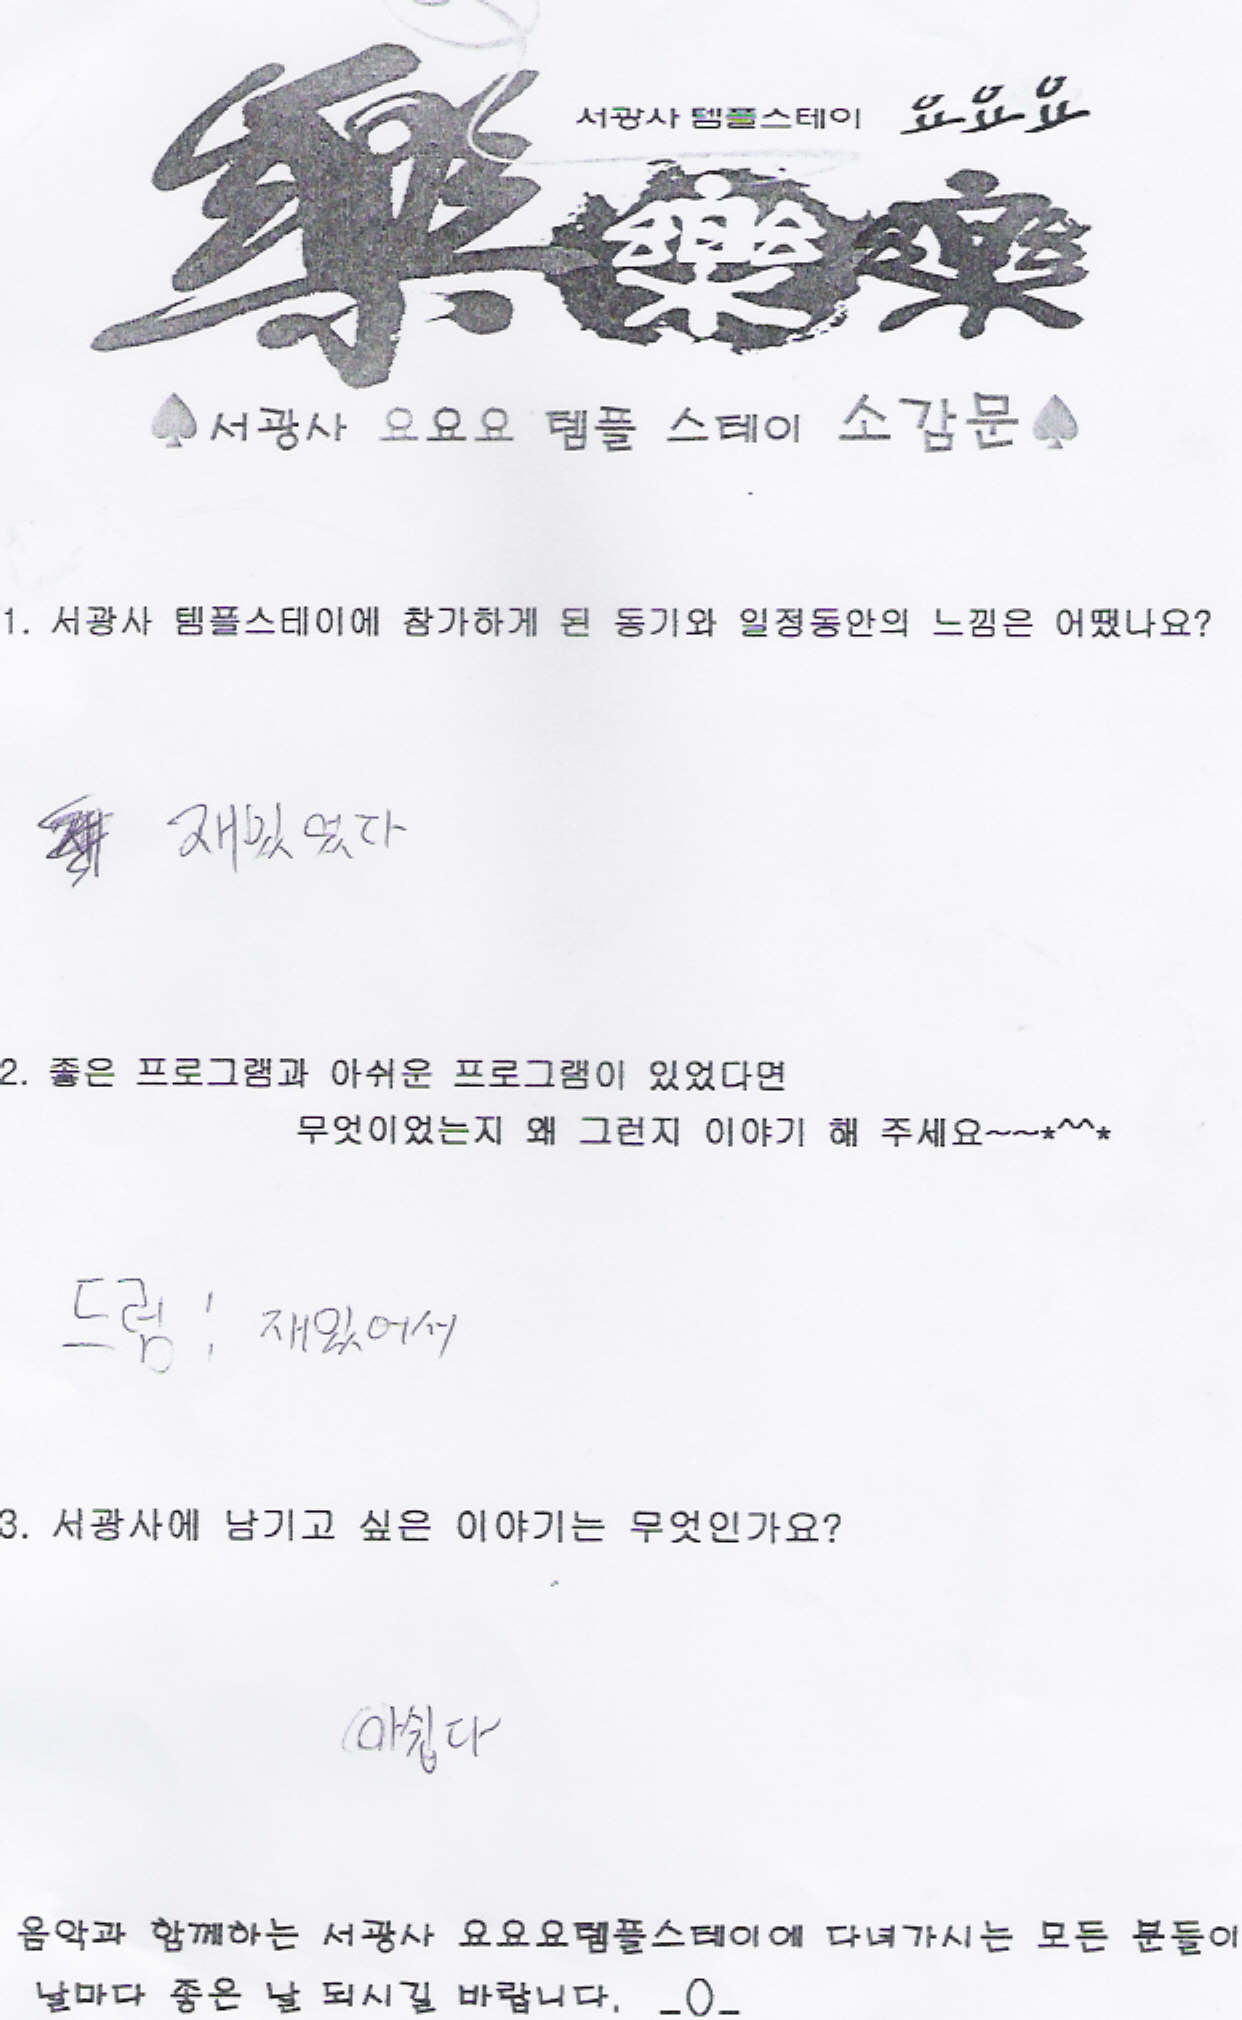 樂
서광사 템플스테이 요요요
樂 樂
♠서광사 요요요 템플 스테이 소감문♠
1. 서광사 템플스테이에 참가하게 된 동기와 일정동안의 느낌은 어땠나요?
재밌었다
2. 좋은 프로그램과 아쉬운 프로그램이 있었다면
무엇이었는지 왜 그런지 이야기 해 주세요~~*^^*
드럼 : 재밌어서
3. 서광사에 남기고 싶은 이야기는 무엇인가요?
아쉽다
음악과 함께하는 서광사 요요요템플스테이에 다녀가시는 모든 분들이
날마다 좋은 날 되시길 바랍니다. _()_